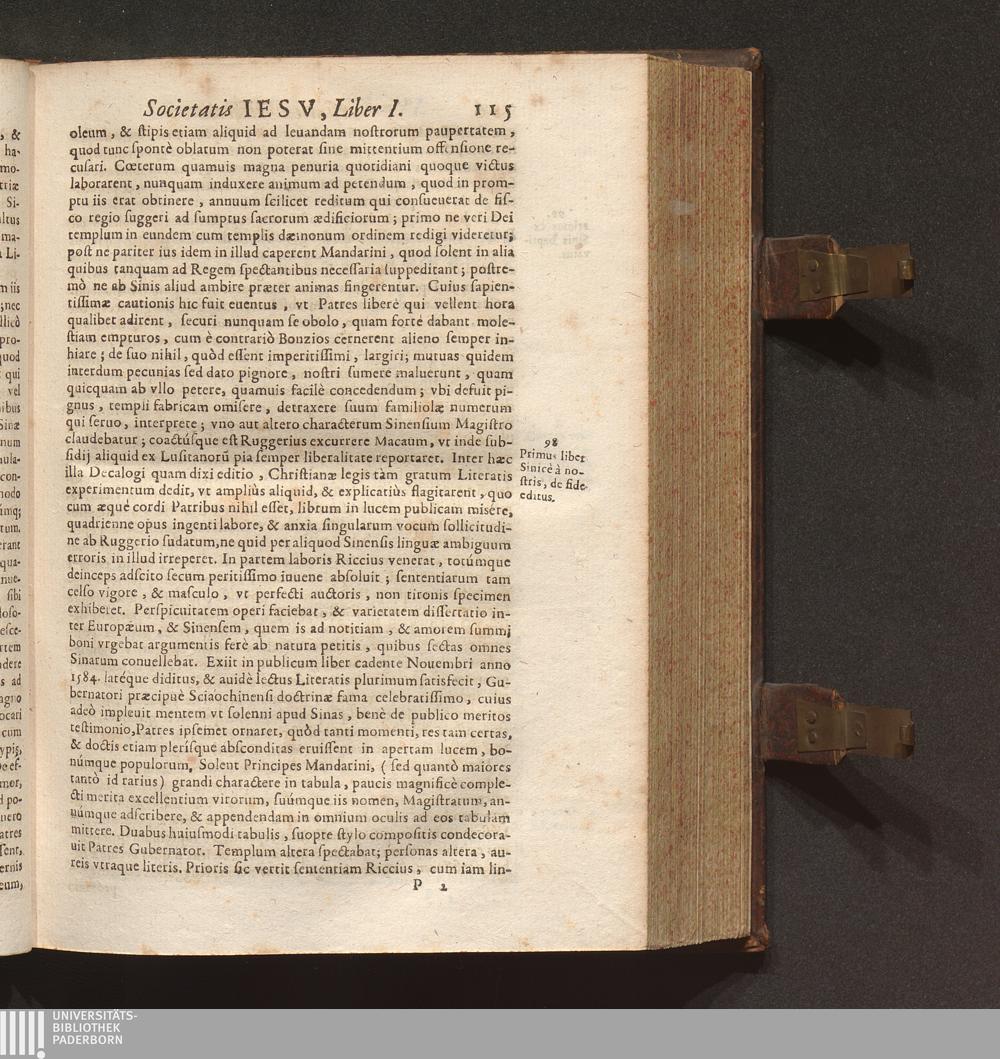 Societatis IESV, Liber I. 115
oleum, & ſtipis etiam aliquid ad leuandam noſtrorum paupertatem,
quod tunc ſpontè oblatum non poterat ſine mittentium offenſione re-
cuſari. Cœterum quamuis magna penuria quotidiani quoque victus
laborarent, nunquam induxere animum ad petendum, quod in prom-
ptu iis erat obtinere, annuum ſcilicet reditum qui conſueuerat de fiſ-
co regio ſuggeri ad ſumptus ſacrorum ædificiorum; primo ne veri Dei
templum in eundem cum templis dæmonum ordinem redigi videretur;
poſt ne pariter ius idem in illud caperent Mandarini, quod ſolent in alia
quibus tanquam ad Regem ſpectantibus neceſſaria ſuppeditant; poſtre-
mò ne ab Sinis aliud ambire præter animas fingerentur. Cuius ſapien-
tiſſimæ cautionis hic fuit euentus, vt Patres liberè qui vellent hora
qualibet adirent, ſecuri nunquam ſe obolo, quam forté dabant mole-
ſtiam empturos, cum è contrariò Bonzios cernerent alieno ſemper in-
hiare; de ſuo nihil, quòd eſſent imperitiſſimi, largiri; mutuas quidem
interdum pecunias ſed dato pignore, noſtri ſumere maluerunt, quam
quicquam ab vllo petere, quamuis facilè concedendum; vbi defuit pi-
gnus, templi fabricam omiſere, detraxere ſuum familiolæ numerum
qui ſeruo, interprete; vno aut altero characterum Sinenſium Magiſtro
claudebatur; coactúſque eſt Ruggerius excurrere Macaum, vt inde ſub-
ſidij aliquid ex Luſitanorū pia ſemper liberalitate reportaret. Inter hæc
illa Decalogi quam dixi editio, Chriſtianæ legis tàm gratum Literatis
experimentum dedit, vt ampliùs aliquid, & explicatiùs flagitarent, quo
cum æquè cordi Patribus nihil eſſet, librum in lucem publicam misére,
quadrienne opus ingenti labore, & anxia ſingularum vocum ſollicitudi-
ne ab Ruggerio ſudatum, ne quid per aliquod Sinenſis linguæ ambiguum
erroris in illud irreperet. In partem laboris Riccius venerat, totúmque
deinceps adſcito ſecum peritiſſimo iuuene abſoluit; ſententiarum tam
celſo vigore, & maſculo, vt perfecti auctoris, non tironis ſpecimen
exhiberet. Perſpicuitatem operi faciebat, & varietatem diſſertatio in-
ter Europæum, & Sinenſem, quem is ad notitiam, & amorem ſummi
boni vrgebat argumentis ferè ab natura petitis, quibus ſectas omnes
Sinarum conuellebat. Exiit in publicum liber cadente Nouembri anno
1584. latéque diditus, & auidè lectus Literatis plurimum ſatisfecit, Gu-
bernatori præcipuè Sciaochinenſi doctrinæ fama celebratiſſimo, cuius
adeò impleuit mentem vt ſolenni apud Sinas, benè de publico meritos
teſtimonio, Patres ipſemet ornaret, quòd tanti momenti, res tam certas,
& doctis etiam plerîſque abſconditas eruiſſent in apertam lucem, bo-
númque populorum. Solent Principes Mandarini, (ſed quantò maiores
tantò id rarius) grandi charactere in tabula, paucis magnificè comple-
cti merita excellentium virorum, ſuúmque iis nomen, Magiſtratum, an-
númque adſcribere, & appendendam in omnium oculis ad eos tabulam
mittere. Duabus huiuſmodi tabulis, ſuopte ſtylo compoſitis condecora-
uit Patres Gubernator. Templum altera ſpectabat; perſonas altera, au-
reis vtraque literis. Prioris ſic vertit ſententiam Riccius, cum iam lin-
P 2
98
Primus liber
Sinicè à no-
ſtris, de fide
editus.
UNIVERSITÄTS-
BIBLIOTHEK
PADERBORN